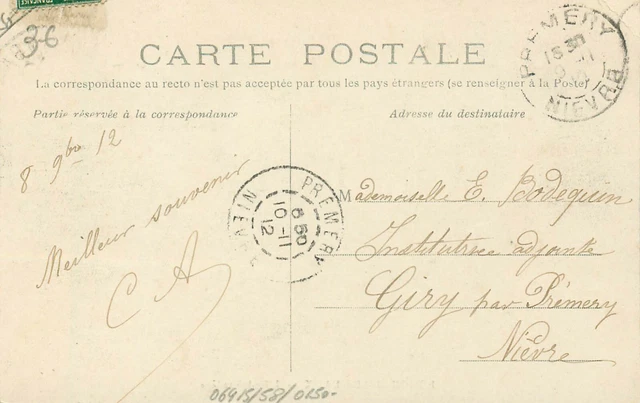 36
CARTE POSTALE
La correspondance au recto n'est pas acceptée par tous les pays étrangers (se renseigner à la Poste)
Partie réservée à la correspondance
Adresse du destinataire
8 9bre 12
Meilleur souvenir
C A
Mademoiselle E. Bodequin
Institutrice adjointe
Giry par Prémery
Nièvre
PREMERY
15 30
NIEVRE
PREMERY
6 50
10-11
12
NIEVRE
06415/58/0150-